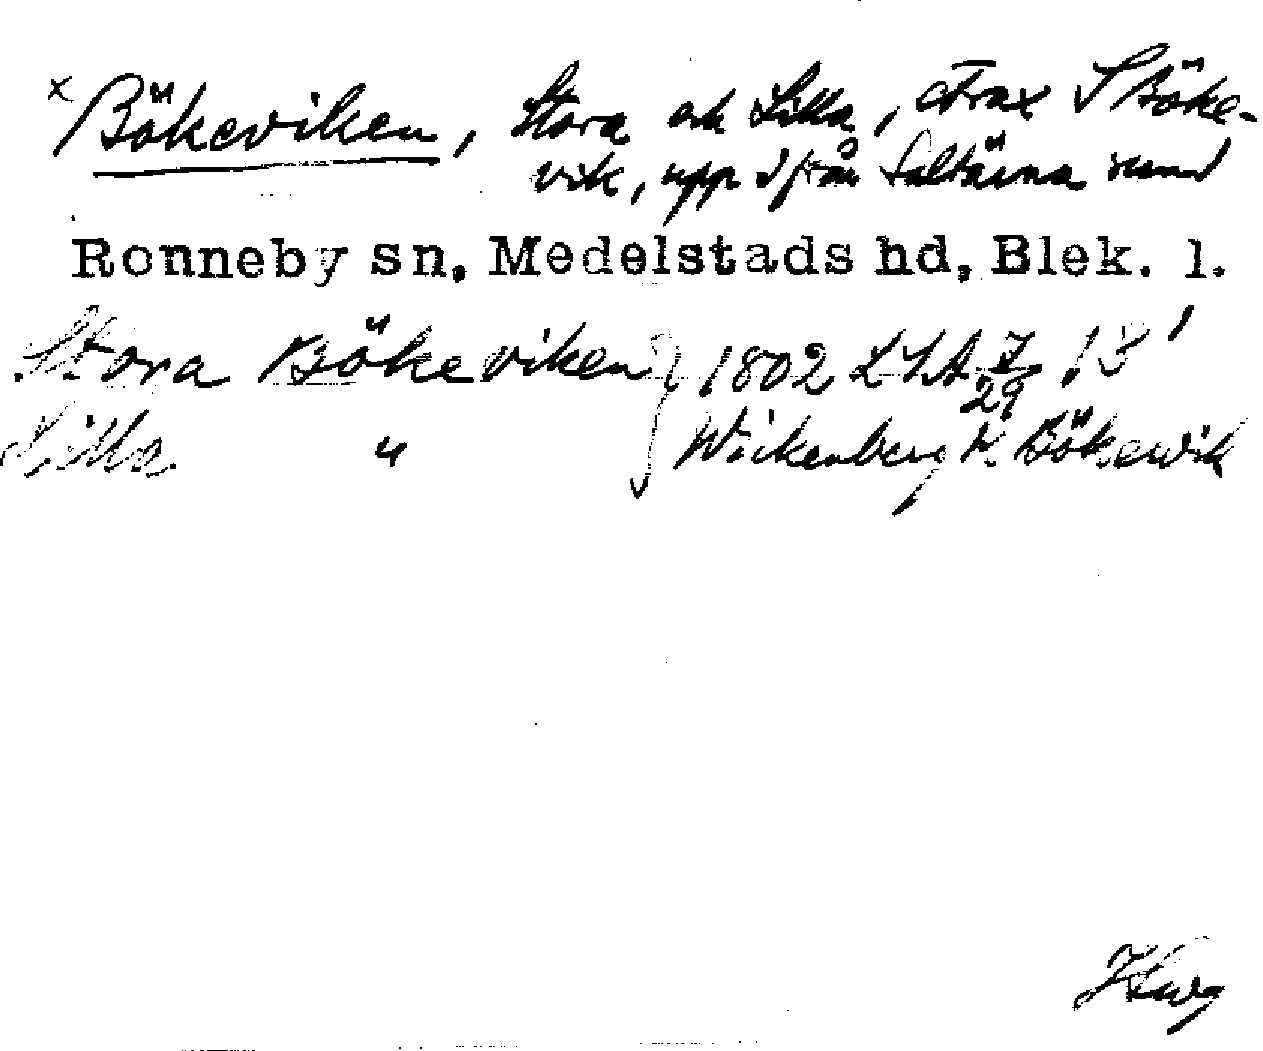 x Bökeviken, Stora och Lilla, strax S Böke-
vik, upp från Saltärna
Ronneby sn, Medelstads hd, Blek. l.
Stora Bökeviken } 1802 LSA
29
Lilla " Wickenberg K. Bökewik